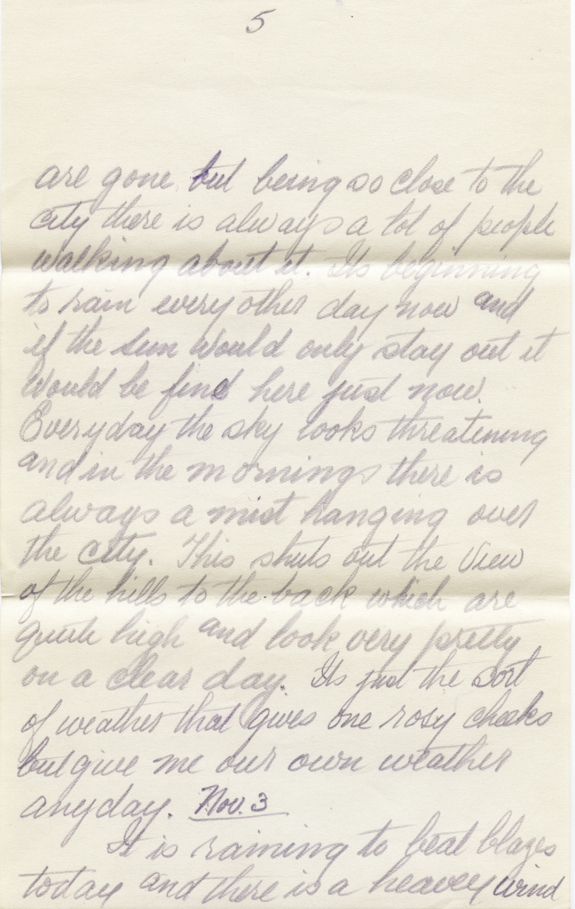 5
are gone but being so close to the
city there is always a lot of people
walking about it. Its beginning
to rain every other day now and
if the sun would only stay out it
would be fine here just now.
Everyday the sky looks threatening
and in the mornings there is
always a mist hanging over
the city. This shuts out the view
of the hills to the back which are
quite high and look very pretty
on a clear day. Its just the sort
of weather that gives one rosy cheeks
but give me our own weather
anyday. Nov. 3
It is raining to beat blazes
today and there is a heavey wind